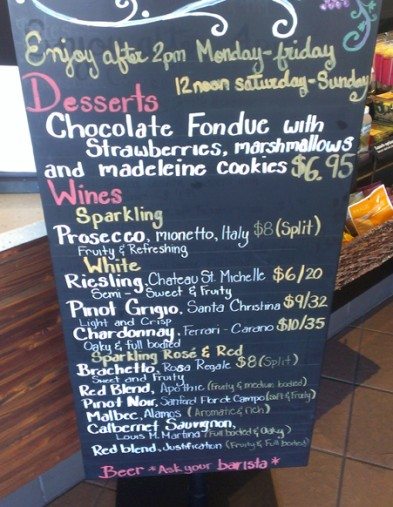 Enjoy after 2pm Monday-friday
12noon saturday-Sunday
Desserts
Chocolate Fondue with
Strawberries, marshmallows
and madeleine cookies $6.95
Wines
Sparkling
Prosecco, mionetto, Italy $8 (Split)
Fruity & Refreshing
White
Riesling, Chateau St. Michelle $6/20
Semi-Sweet & Fruity
Pinot Grigio, Santa Christina $9/32
Light and Crisp
Chardonnay, Ferrari-Carano $10/35
Oaky & full bodied
Sparkling Rosé & Red
Brachetto, Rosa Regale $8 (Split)
Sweet and Fruity
Red Blend, Apothic (Fruity & medium bodied)
Pinot Noir, Sanford Flor de Campo (soft & Fruity)
Malbec, Alamos (Aromatic & rich)
Calbernet Sauvignon,
Louis M. Martini (Full bodied & Oaky)
Red blend, Justification (Fruity & Full bodied)
Beer *Ask your barista*